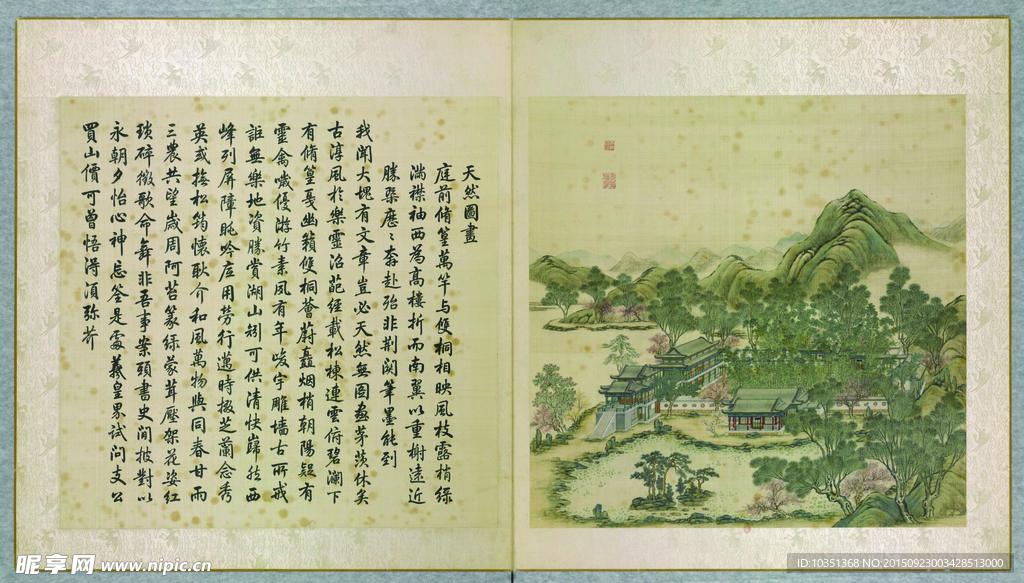 天然圖畫
庭前脩篁萬竿與雙桐相映風枝露梢綠
滿襟袖西為高樓折而南翼以重榭遠近
勝槩歷歷奔赴殆非荆關筆墨能到
我聞大塊有文章豈必天然無圖畫茅茨休矣
古淳風於樂靈沼葩經載松棟連雲俯碧瀾下
有脩篁戛幽籟雙桐薈蔚矗烟梢朝陽疑有
靈禽噦優游竹素夙有年峻宇雕墻古所戒
詎無樂地資勝賞湖山矧可供清快歸然西
峰列屏障眺吟底用勞行邁時掇芝蘭念秀
英或撫松筠懷耿介和風萬物與同春甘雨
三農共望歲周阿苔篆綠蒙茸壓架花姿紅
瑣碎徵歌命舞非吾事案頭書史閒披對以
永朝夕怡心神忘筌是處羲皇界試問支公
買山價可曾悟得須彌芥
昵享网 www.nipic.cn
ID:10351368 NO:20150923003428513000